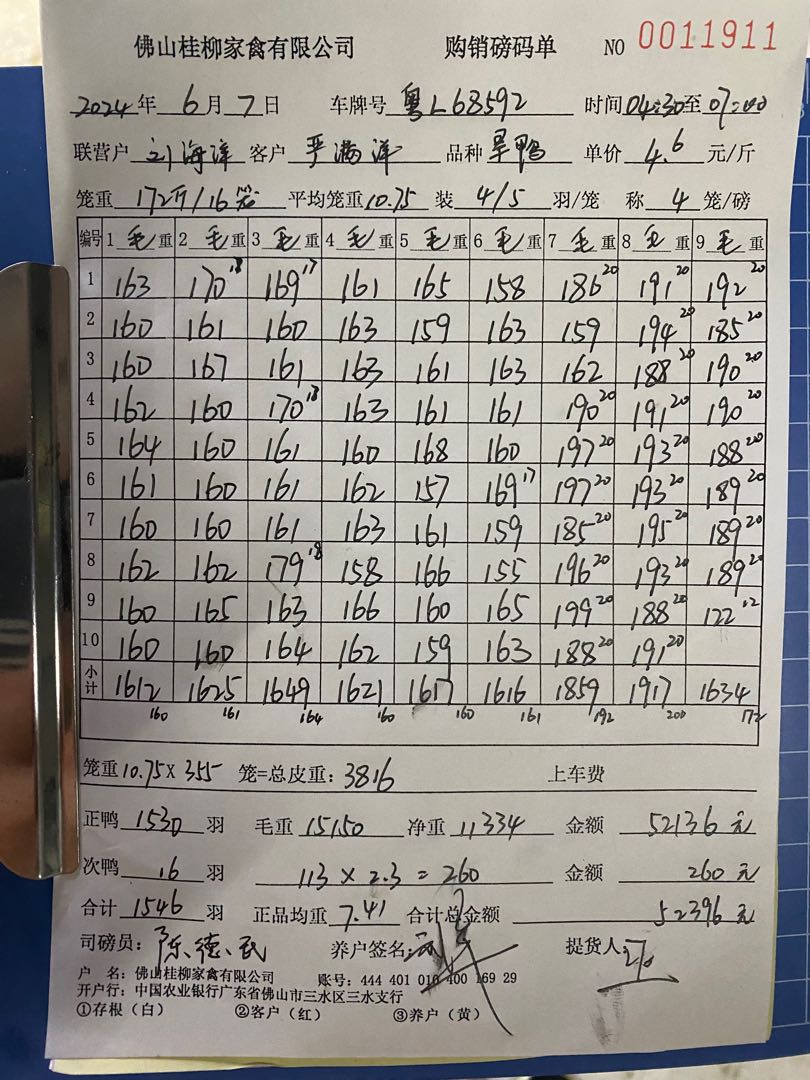 佛山桂柳家禽有限公司 购销磅码单 NO 0011911
2024年 6月 7日 车牌号 粤L68592 时间04:30至07:00
联营户 刘海洋 客户 严满洋 品种 旱鸭 单价 4.6 元/斤
笼重 172斤/16笼 平均笼重10.75 装 4/5 羽/笼 称 4 笼/磅
编号 1 毛 重 2 毛 重 3 毛 重 4 毛 重 5 毛 重 6 毛 重 7 毛 重 8 毛 重 9 毛 重
1 163 170 18 169 17 161 165 158 186 20 191 20 192 20
2 160 161 160 163 159 163 159 194 20 185 20
3 160 167 161 163 161 163 162 188 20 190 20
4 162 160 170 18 163 161 161 190 20 191 20 190 20
5 164 160 161 160 168 160 197 20 193 20 188 20
6 161 160 161 162 157 169 17 197 20 193 20 189 20
7 160 160 161 163 161 159 185 20 195 20 189 20
8 162 162 179 18 158 166 155 196 20 193 20 189 20
9 160 165 163 166 160 165 199 20 188 20 122 12
10 160 160 164 162 159 163 188 20 191 20
小计 1612 1625 1649 1621 1617 1616 1859 1917 1634
160 161 164 160 160 161 192 200 172
笼重10.75× 355 笼=总皮重：3816 上车费
正鸭 1530 羽 毛重 15150 净重 11334 金额 52136 元
次鸭 16 羽 113 × 2.3 = 260 金额 260 元
合计 1546 羽 正品均重 7.41 合计总金额 52396 元
司磅员：陈德民 养户签名: 提货人:
户 名：佛山桂柳家禽有限公司 账号：444 401 010 400 169 29
开户行：中国农业银行广东省佛山市三水区三水支行
①存根（白） ②客户（红） ③养户（黄）